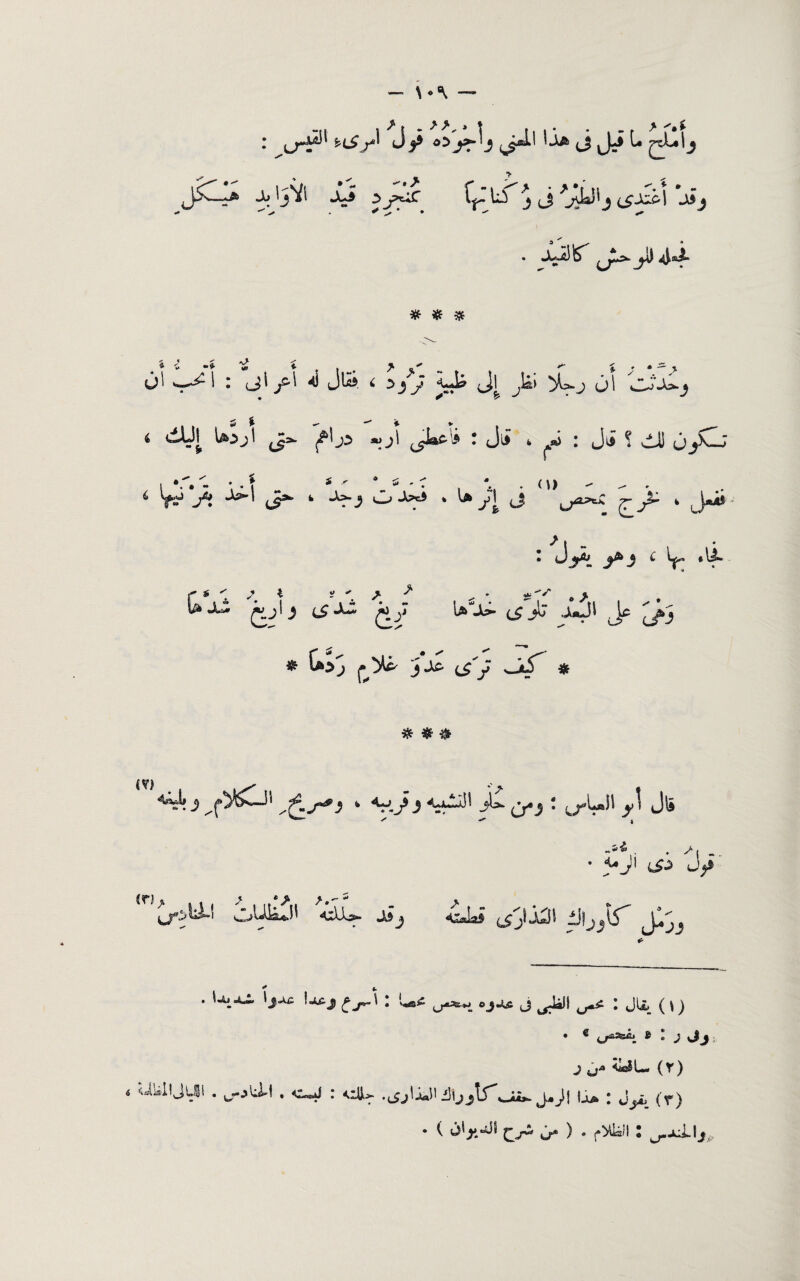 — ١٠٩ —
وأَمْلَحُ ما قيل في هذا المعنى وأَجْوَدُهُ قولُ امرىءِ القيس :
وقد أَغْتَدِى والطَّيْرُ في وُكُناتِها بمُنْجَرِدٍ قَيْدِ الأَوابِدِ هَيْكَلِ
فجعله للوحش كالقَيْدِ .
* * *
وحُدِّثْتُ أن رجلاً نظر إلى ظبيةٍ تَرُودُ ، فقال له أعرابىٌّ : أتحب أن
تكون لك ؟ قال : نعم ، قال : فأعطنى أربعة دراهم حتى أردّها إليك ،
ففعل ، فخرج يَمْحَصُ (١) في إثرها ، فجدّت وجدّ ، حتى أخذ بقرنيها ،
فجاء بها ، وهو يقول :
وَهْىَ على البُعْدِ تُلَوِّى خَدَّها تُرِيغُ شَدِّى وأُرِيغُ شَدَّها
* كيف تَرَى عَدْوَ غلامٍ رَدَّها *
* * *
قال أبو العباس : ومن حُلْوِ التشبيهِ وقريبِهِ ، وصريحِ الكلامِ وبليغه (٢)
قولُ ذى الرُّمَّةِ .
ورَمْلٍ كأوْراكِ العَذارَى قطعتُهُ وقد جَلَّلَتْهُ المُظْلِماتُ الحنادِسُ (٣)
(١) يقال : محص الظبى في عدوه يمحص محصا : أسرع وعدا عدوا شديدا .
وفى ر : « يفحص » .
(٢) ساقطة من ر
(٣) يقول : هذا الرمل حقف كأوراك العذارى . جللته : ألبسته . الحنادس . الليالى المظلمة ،
والحندس : الظلام . ( من شرح الديوان ) .